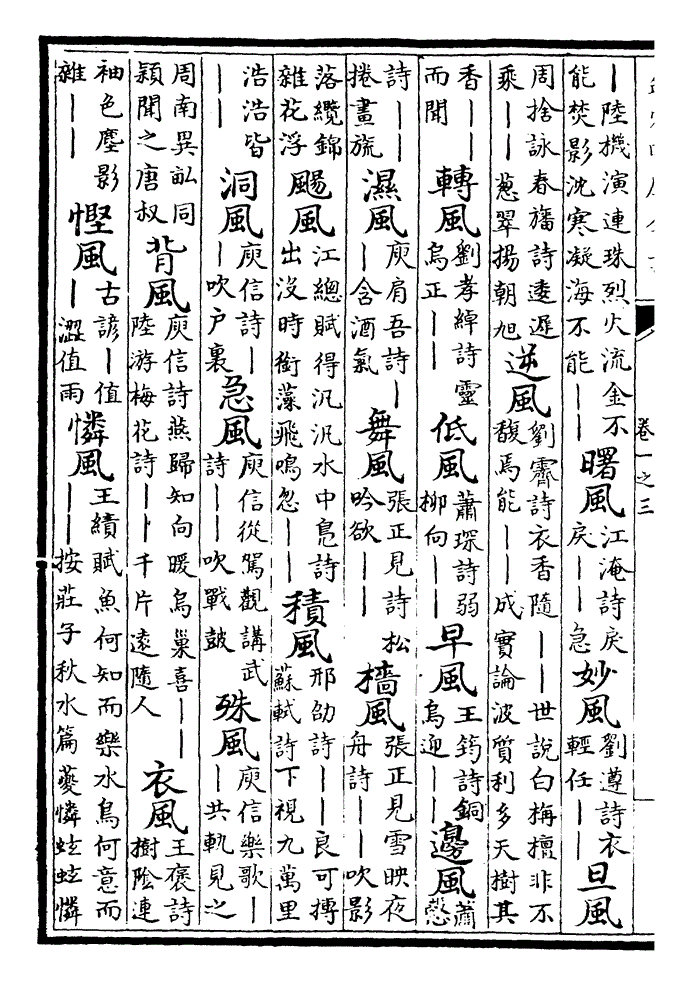 卷一之三
｜陸機演連珠烈火流金不
能焚影沈寒凝海不能｜｜
曙風
江淹詩戾
戾｜｜急
妙風
劉遵詩衣
輕任｜｜
旦風
周捨詠春旛詩逶遲
乘｜｜葱翠揚朝旭
逆風
劉霽詩衣香隨｜｜世說白栴檀非不
馥焉能｜｜成實論波質利多天樹其
香｜｜
而聞
轉風
劉孝綽詩靈
烏正｜｜
低風
蕭琛詩弱
柳向｜｜
早風
王筠詩銅
烏迎｜｜
邊風
蕭
慤
詩｜｜
捲畫旒
濕風
庾肩吾詩｜
｜含酒氣
舞風
張正見詩松
吟欲｜｜
檣風
張正見雪映夜
舟詩｜｜吹影
落纜錦
雜花浮
颺風
江總賦得汎汎水中鳬詩
出沒時銜藻飛鳴忽｜｜
積風
邢劭詩｜｜良可摶
蘇軾詩下視九萬里
浩浩皆
｜｜
洞風
庾信詩｜
｜吹户裏
急風
庾信從駕觀講武
詩｜｜吹戰鼓
殊風
庾信樂歌｜
｜共軌見之
周南異畝同
頴聞之唐叔
背風
庾信詩燕歸知向暖烏巢喜｜｜
陸游梅花詩｜｜千片遠隨人
衣風
王褒詩
樹陰連
袖色塵影
雜｜｜
慳風
古諺｜值
｜澀值雨
憐風
王績賦魚何知而樂水鳥何意而
｜｜按莊子秋水篇夔憐蚿蚿憐